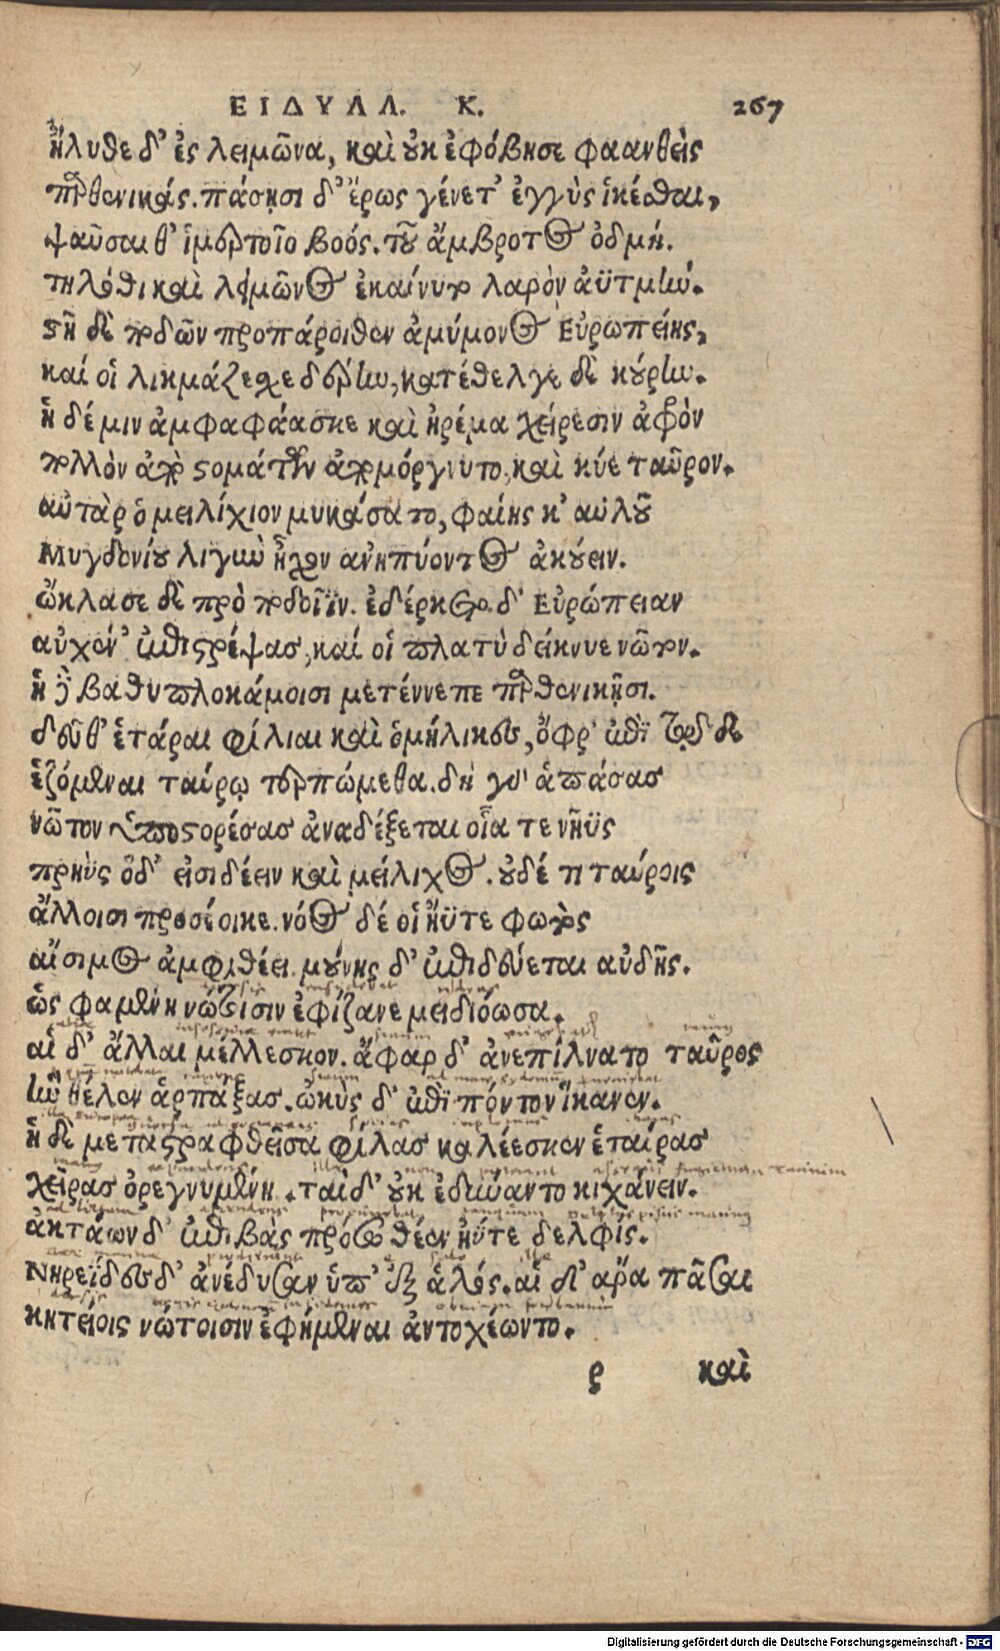 ΕΙΔΥΛΛ. Κ. 267
ἤλυθε δ' ἐς λειμῶνα, καὶ οὐκ ἐφόβησε φαανθεὶς
παρθενικάς. πάσῃσι δ' ἔρως γένετ' ἐγγὺς ἱκέσθαι,
ψαῦσαι θ' ἱμερτοῖο βοός. τοῦ ἄμβροτος ὀδμή.
τηλόθι καὶ λειμῶνος ἐκαίνυτο λαρὸν ἀϋτμήν.
στῆ δὲ ποδῶν προπάροιθεν ἀμύμονος Εὐρωπείης,
καί οἱ λιχμάζεσκε δέρην, κατέθελγε δὲ κούρην.
ἣ δέ μιν ἀμφαφάασκε καὶ ἠρέμα χείρεσιν ἀφρὸν
πολλὸν ἀπὸ στομάτων ἀπομόργνυτο, καὶ κύσε ταῦρον.
αὐτὰρ ὁ μειλίχιον μυκάσατο, φαίης κ' αὐλοῦ
Μυγδονίου λιγὺν ἦχον ἀνηπύοντος ἀκούειν.
ὤκλασε δὲ πρὸ ποδοῖϊν. ἐδέρκετο δ' Εὐρώπειαν
αὐχέν' ἐπιστρέψας, καί οἱ πλατὺ δείκνυε νῶτον.
ἣ δὲ βαθυπλοκάμοισι μετέννεπε παρθενικῇσι.
δεῦθ' ἑτάραι φίλιαι καὶ ὁμήλικες, ὄφρ' ἐπὶ τῷδε
ἑζόμεναι ταύρῳ τερπώμεθα. δὴ γὰρ ἁπάσας
νῶτον ὑποστορέσας ἀναδέξεται οἷα τε νῆϋς
πρηῢς ὅδ' εἰσιδέειν καὶ μείλιχος. οὐδέ τι ταύροις
ἄλλοισι προσέοικε. νόος δέ οἱ ἠΰτε φωτὸς
αἴσιμος ἀμφιθέει. μούνης δ' ἐπιδεύεται αὐδῆς.
ὣς φαμένη νώτοισιν ἐφίζανε μειδιόωσα.
αἱ δ' ἄλλαι μέλλεσκον. ἄφαρ δ' ἀνεπίλνατο ταῦρος
ἣν θέλεν ἁρπάξας. ὠκὺς δ' ἐπὶ πόντον ἵκανεν.
ἣ δὲ μεταστραφθεῖσα φίλας καλέεσκεν ἑταίρας
χεῖρας ὀρεγνυμένη. ταὶ δ' οὐκ ἐδύναντο κιχάνειν.
ἀκτάων δ' ἐπιβὰς πρόσω θέεν ἠΰτε δελφίς.
Νηρεΐδες δ' ἀνέδυσαν ὑπ' ἐξ ἁλός. αἱ δ' ἄρα πᾶσαι
κητείοις νώτοισιν ἐφήμεναι ἀντοχέωντο.
ρ καὶ
Digitalisierung gefördert durch die Deutsche Forschungsgemeinschaft - DFG